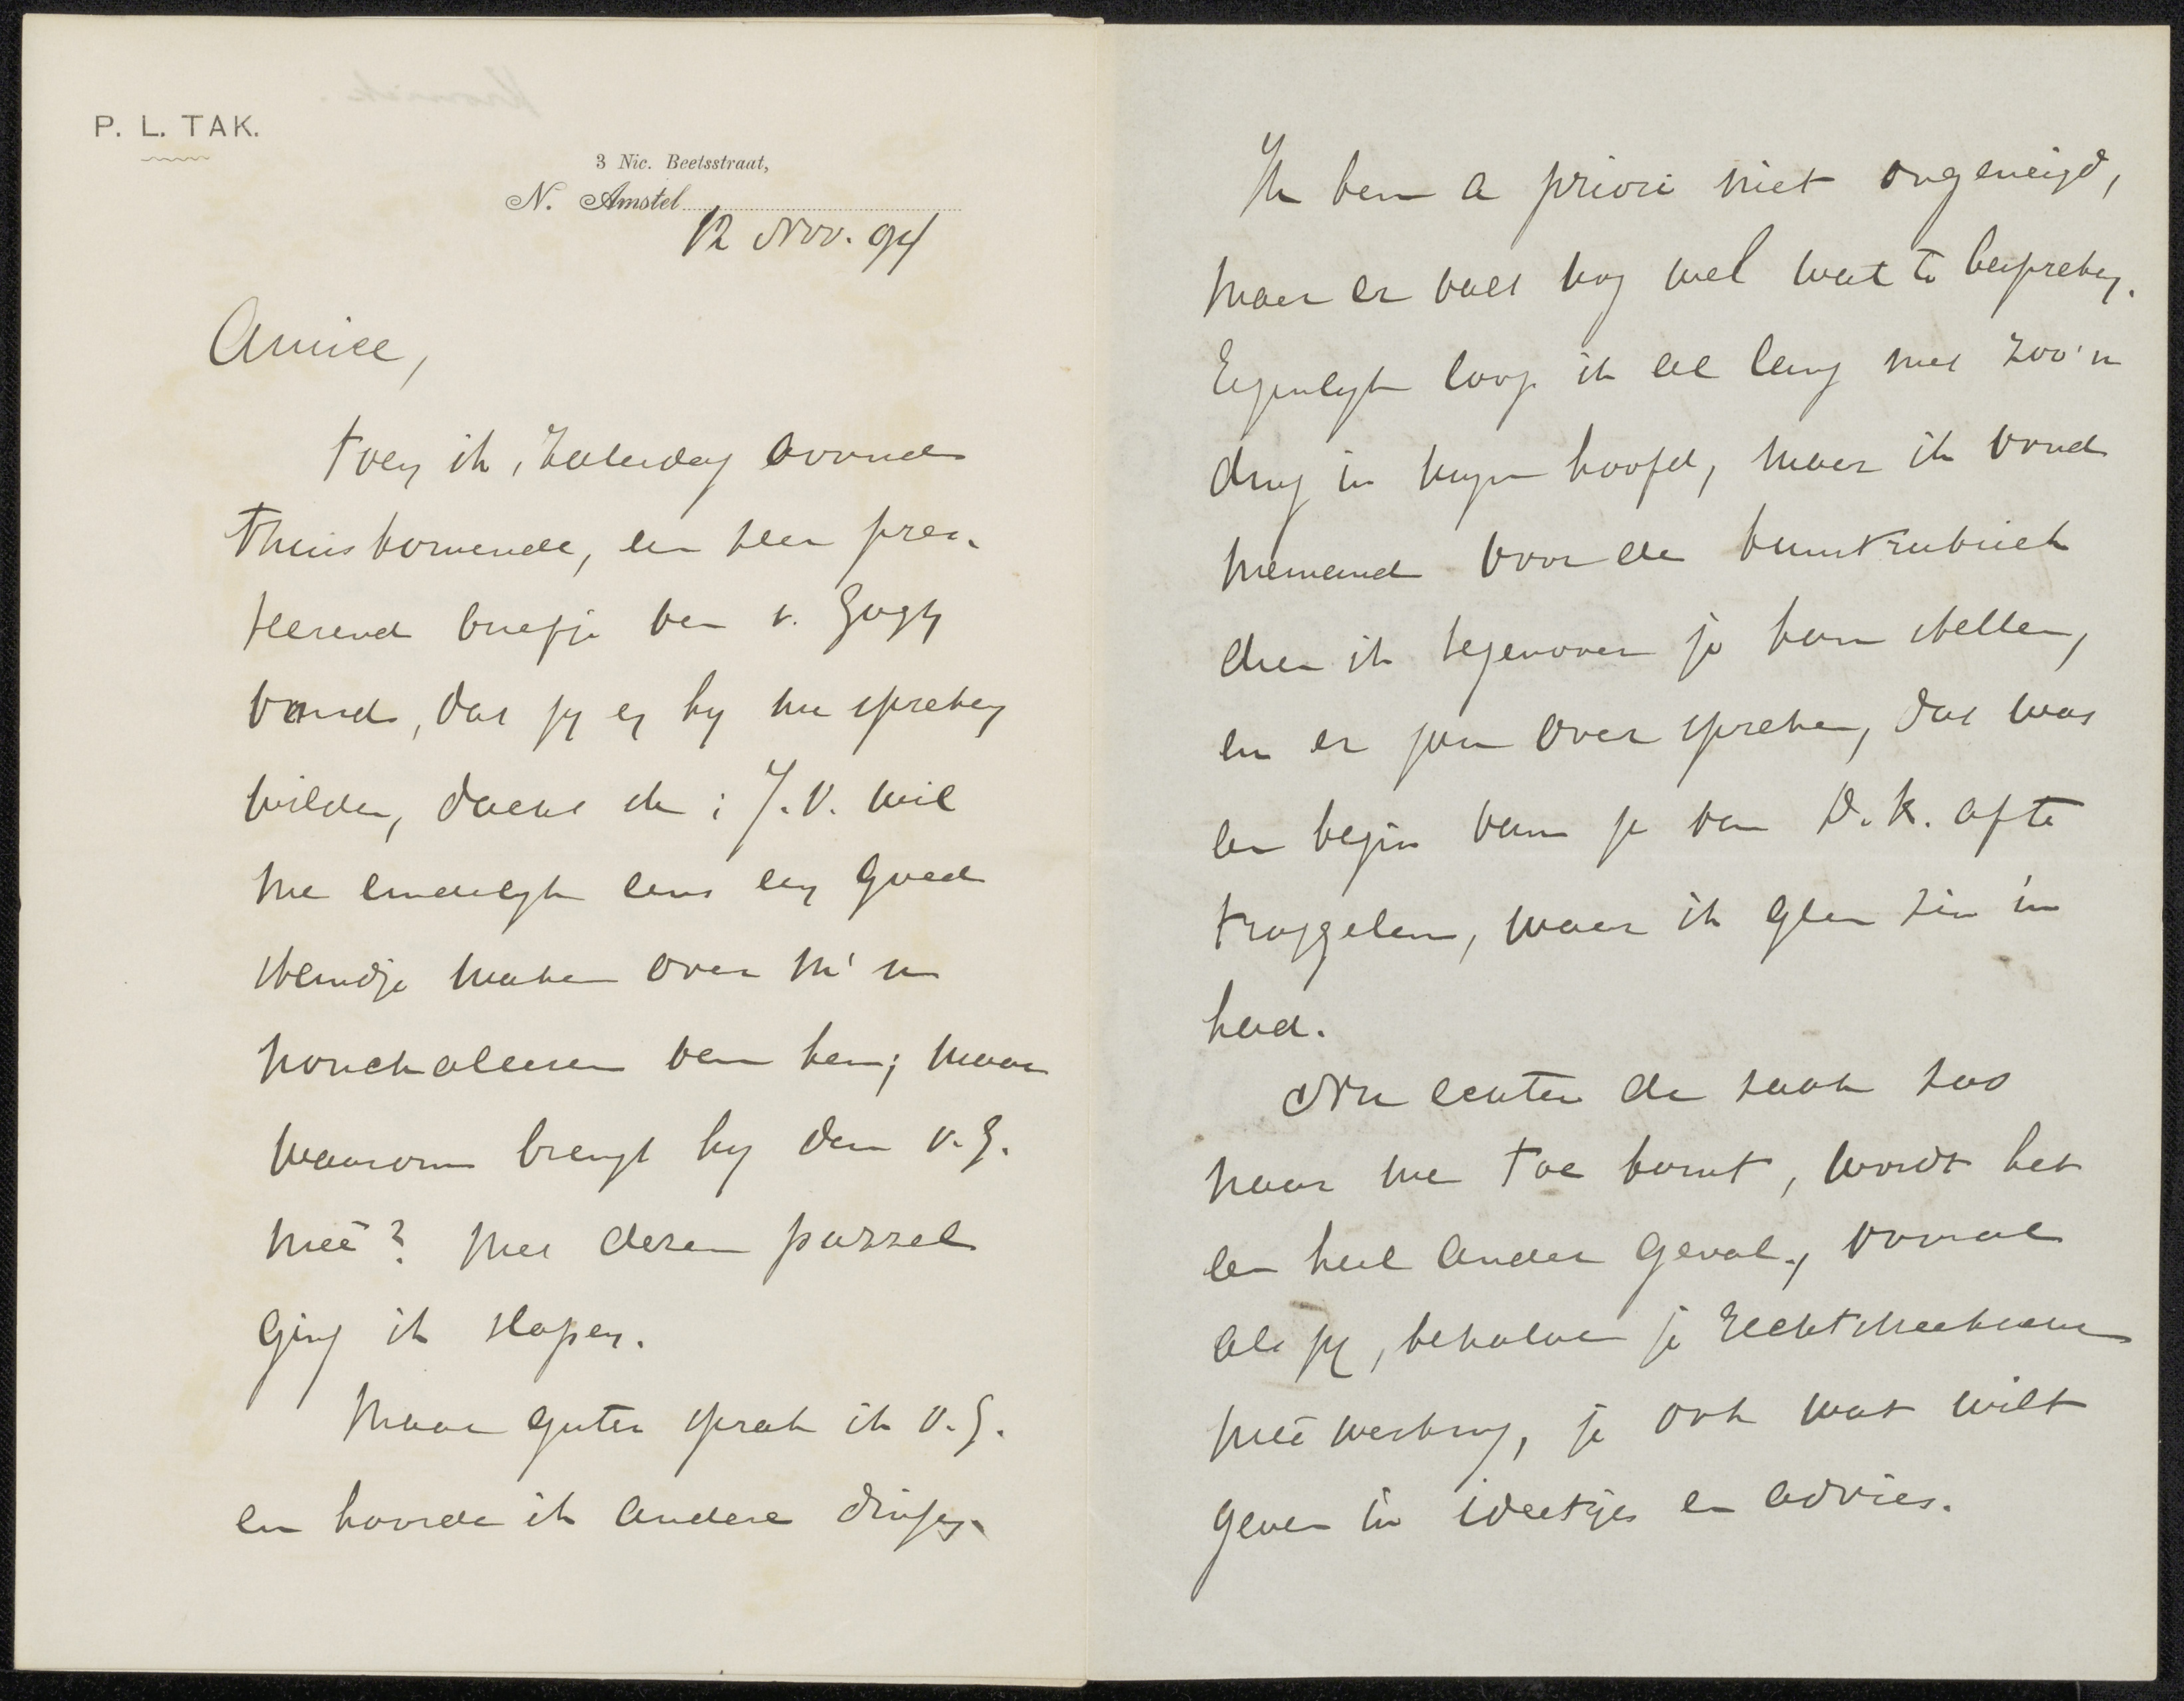 P. L. TAK.
3 Nic. Beetsstraat,
N. Amstel
12 Nov. 94
Amice,
Toen ik, Zaterdag avond
thuiskomende, een
briefje van v. Gogh
vond, dat jij en hij me spreken
wilden, dacht ik: J.V. wil
me eindelijk eens een goed
standje maken over m'n
nonchaleeren van hem; maar
waarom brengt hij dan v. G.
meê? Met dezen puzzel
ging ik slapen.
Maar gister sprak ik v. G.
en hoorde ik andere dingen.
Ik ben a priori niet ongeneigd,
maar er valt nog wel wat te bespreken.
Eigenlijk loop ik al lang met zoo'n
ding in mijn hoofd, maar ik vond
niemand voor de kunstrubriek
dien ik tegenover je kon stellen,
en er jou over spreken, dat was
een begin van je van D. K. af te
troggelen, waar ik geen zin in
had.
Nu echter de zaak zoo
naar me toe komt, wordt het
een heel ander geval, vooral
als jij, behalve je rechtstreeksche
meêwerking, je ook wat wilt
geven in ideetjes en advies.